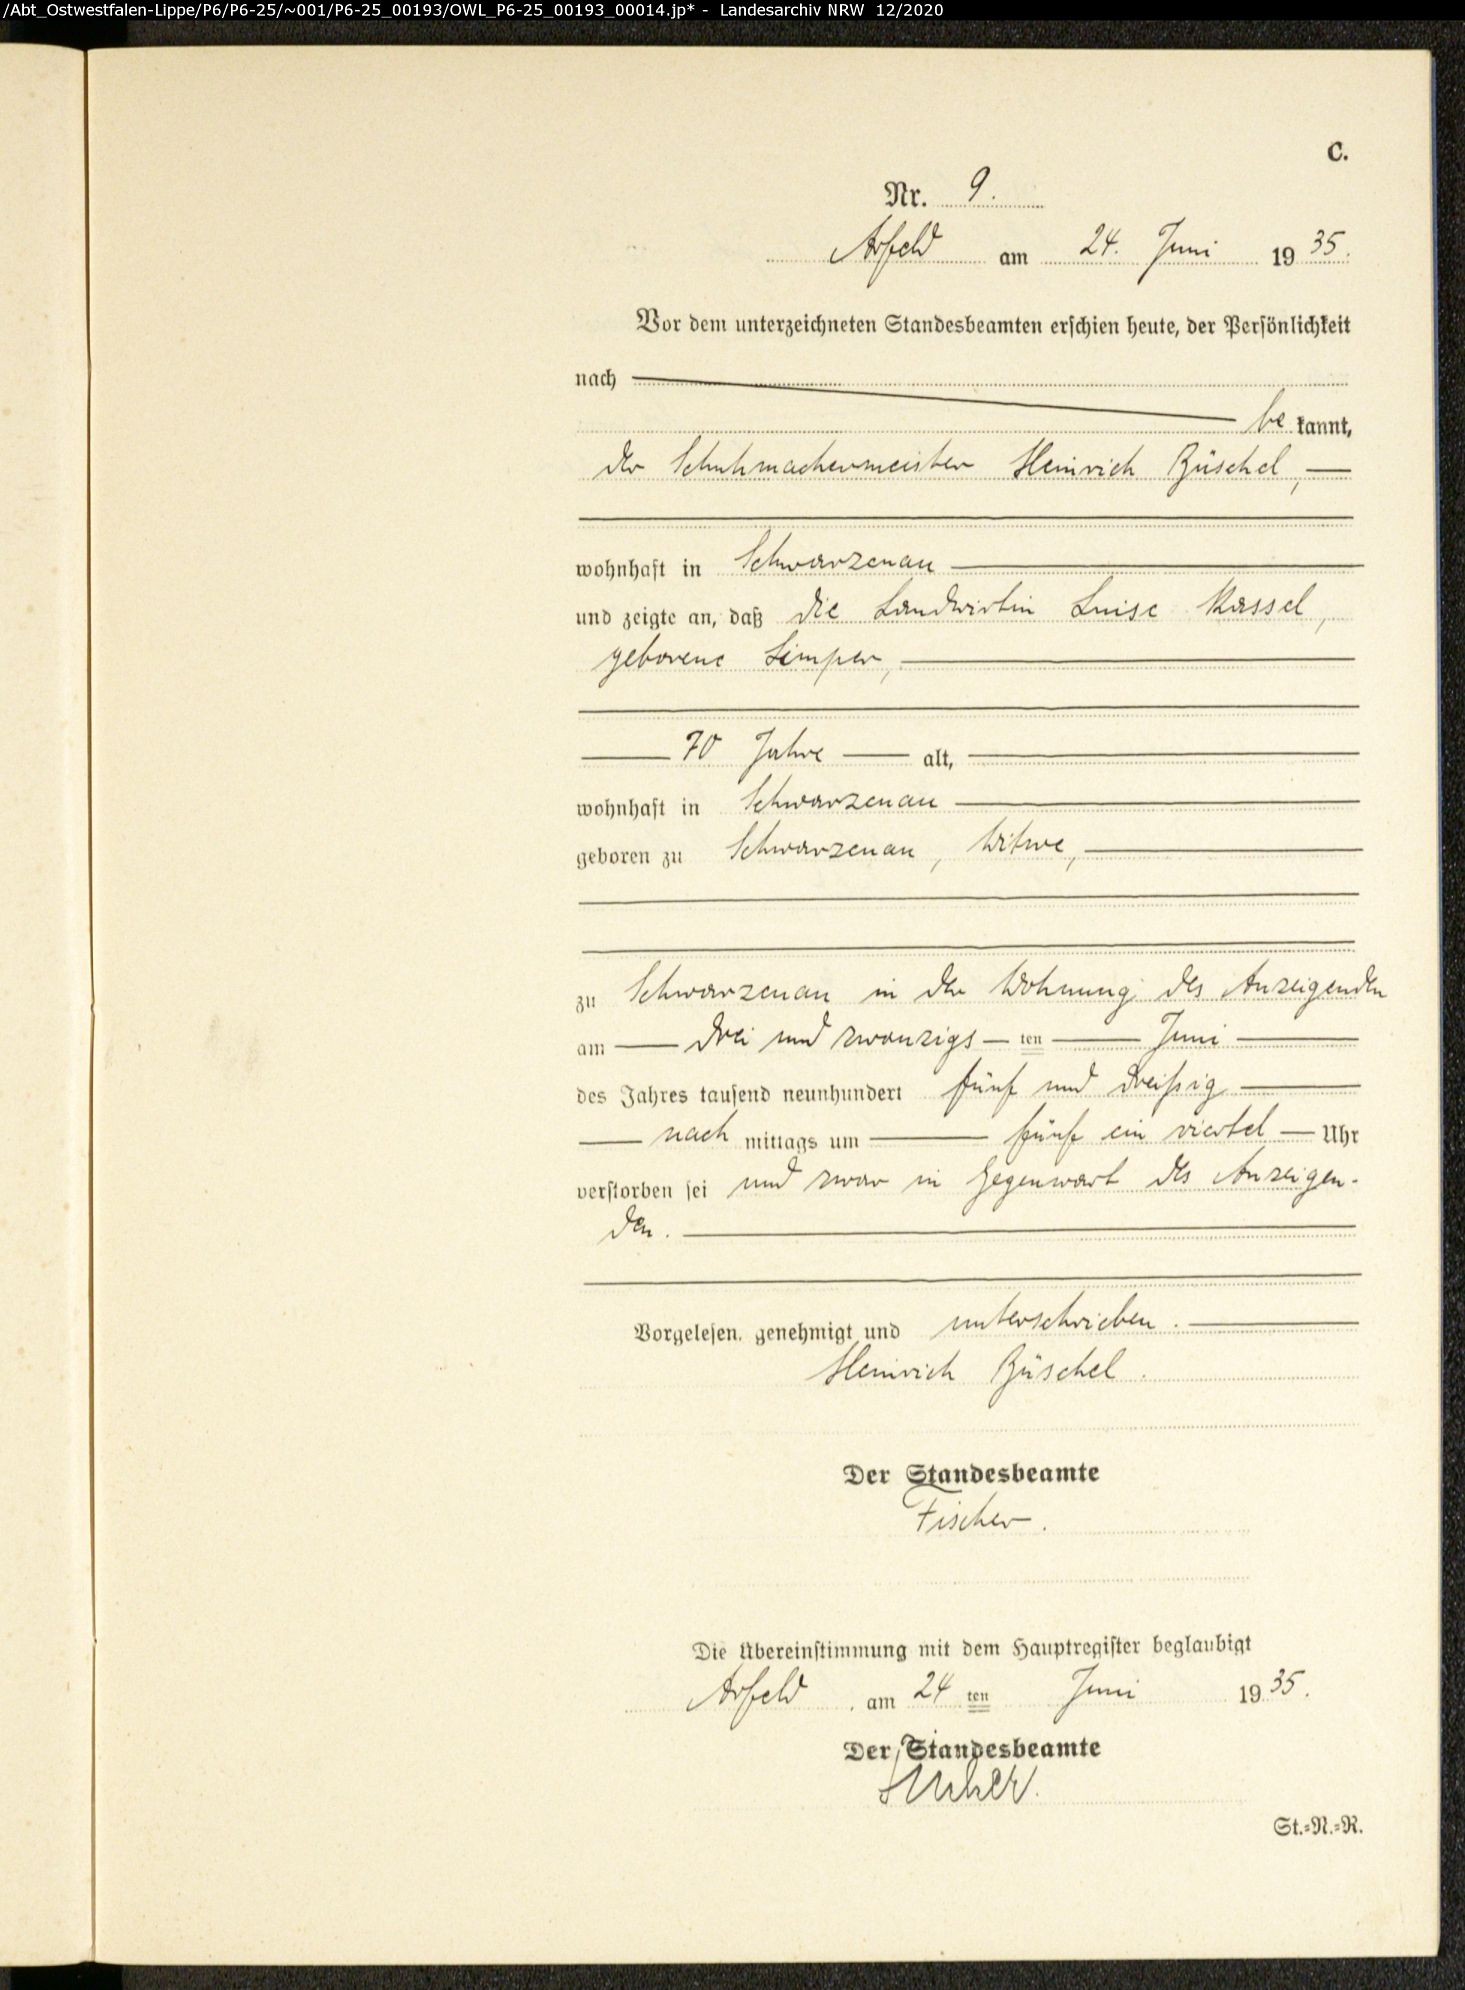 /Abt_Ostwestfalen-Lippe/P6/P6-25/~001/P6-25_00193/OWL_P6-25_00193_00014.jp* - Landesarchiv NRW 12/2020
C.
Nr. 9.
Arfeld am 24. Juni 1935.
Vor dem unterzeichneten Standesbeamten erschien heute, der Persönlichkeit
nach
be kannt,
der Schuhmachermeister Heinrich Büschel,
wohnhaft in Schwarzenau
und zeigte an, daß die Landwirtin Luise Kassel,
geborene Limper,
70 Jahre alt,
wohnhaft in Schwarzenau
geboren zu Schwarzenau, Witwe,
zu Schwarzenau in der Wohnung des Anzeigenden
am drei und zwanzigs ten Juni
des Jahres tausend neunhundert fünf und dreißig
nach mittags um fünf ein viertel Uhr
verstorben sei und zwar in Gegenwart des Anzeigen-
den.
Vorgelesen, genehmigt und unterschrieben.
Heinrich Büschel.
Der Standesbeamte
Fischer.
Die Übereinstimmung mit dem Hauptregister beglaubigt
Arfeld, am 24 ten Juni 1935.
Der Standesbeamte
St.=N.=R.